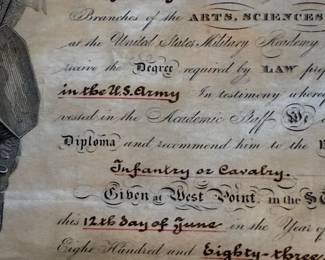 Branches of the ARTS, SCIENCES
at the United States Military Academy
receive the Degree required by LAW
in the U.S. Army In testimony
vested in the Academic Staff We
Diploma and recommend him to the
Infantry or Cavalry.
Given at West Point, in the
this 12th day of June in the Year of
Eight Hundred and Eighty-three